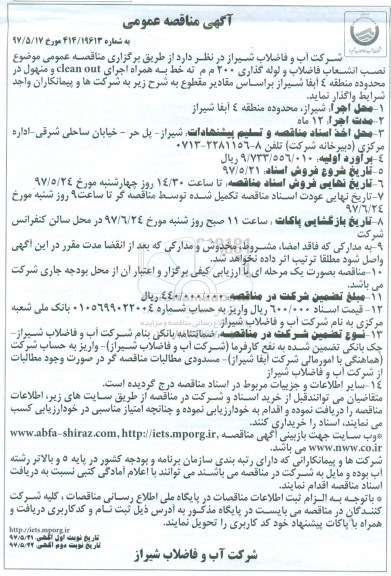 آگهی مناقصه عمومی
به شماره ۴۱۴/۱۹۶۱۳ مورخ ۹۷/۵/۱۷
شرکت آب و فاضلاب شیراز در نظر دارد از طریق برگزاری مناقصه عمومی موضوع
نصب انشعاب فاضلاب و لوله گذاری ۲۰۰ م م ته خط به همراه اجرای clean out و منهول در
محدوده منطقه ۴ آبفا شیراز براساس مقادیر مقطوع به شرح زیر به شرکت ها و پیمانکاران واجد
شرایط واگذار نماید.
۱- محل اجرا: شیراز، محدوده منطقه ۴ آبفا شیراز
۲- مدت اجرا: ۱۲ ماه
۳- محل اخذ اسناد مناقصه و تسلیم پیشنهادات: شیراز- پل حر - خیابان ساحلی شرقی-اداره
مرکزی (دبیرخانه شرکت) تلفن ۸-۳۲۲۸۱۱۵۶-۰۷۱
۴- برآورد اولیه: ۹/۷۳۳/۵۵۶/۰۱۰ ریال
۵- تاریخ شروع فروش اسناد: ۹۷/۵/۲۱
۶- تاریخ نهایی فروش اسناد مناقصه: تا ساعت ۱۴/۳۰ روز چهارشنبه مورخ ۹۷/۵/۲۴
۷- تاریخ نهایی عودت اسناد مناقصه تکمیل شده توسط مناقصه گر تا ساعت ۹ روز شنبه مورخ
۹۷/۶/۲۴
۸- تاریخ بازگشایی پاکات: ساعت ۱۱ صبح روز شنبه مورخ ۹۷/۶/۲۴ در محل سالن کنفرانس
شرکت
۹- به مدارکی که فاقد امضا، مشروط، مخدوش و مدارکی که بعد از انقضا مدت مقرر در این آگهی
واصل شود مطلقا ترتیب اثر داده نخواهد شد.
۱۰- مناقصه بصورت یک مرحله ای با ارزیابی کیفی برگزار و اعتبار آن از محل بودجه جاری شرکت
می باشد.
۱۱- مبلغ تضمین شرکت در مناقصه: ۴۴۰/۰۰۰/۰۰۰ ریال
۱۲- قیمت اسناد ۶۰۰/۰۰۰ ریال واریز به حساب شماره ۰۱۰۵۶۹۹۰۲۲۰۰۴ بانک ملی شعبه
مرکزی به نام شرکت آب و فاضلاب شیراز
۱۳- نوع تضمین شرکت در مناقصه: ضمانتنامه بانکی بنام شرکت آب و فاضلاب شیراز-
چک بانکی تضمین شده به نفع کارفرما (شرکت آب و فاضلاب شیراز)- واریز به حساب شرکت
(هماهنگی با امورمالی شرکت آبفا شیراز)- مسدودی مطالبات مناقصه گر در صورت وجود مطالبات
از شرکت آب و فاضلاب شیراز
۱۴- سایر اطلاعات و جزییات مربوط در اسناد مناقصه درج گردیده است.
متقاضیان می توانندقبل از خرید اسناد و شرکت در مناقصه از طریق سایت های زیر، اطلاعات
مناقصه را دریافت نموده و اقدام به خودارزیابی نموده و چنانچه امتیاز مناسبی در خودارزیابی کسب
می نمایند، اسناد را خریداری کنند.
*وب سایت جهت بازبینی آگهی مناقصه www.abfa-shiraz.com, http://iets.mporg.ir,
www.nww.co.ir می باشد.
شرکت ها و پیمانکارانی که دارای رتبه بندی سازمان برنامه و بودجه کشور در پایه ۵ و بالاتر رشته
آب بوده و مایل به شرکت در مناقصه می باشند می توانند با اعلام آمادگی کتبی نسبت به دریافت
اسناد مناقصه اقدام نمایند.
* باتوجه به الزام ثبت اطلاعات مناقصات در پایگاه ملی اطلاع رسانی مناقصات، کلیه شرکت
کنندگان در مناقصه می بایست در پایگاه مذکور به آدرس ذیل ثبت نام و کدکاربری دریافت و
همراه با پاکات پیشنهاد خود کد کاربری را تحویل نمایند.
http://iets.mporg.ir
تاریخ نوبت اول آگهی: ۹۷/۵/۲۱
تاریخ نوبت دوم آگهی: ۹۷/۵/۲۲
شرکت آب و فاضلاب شیراز